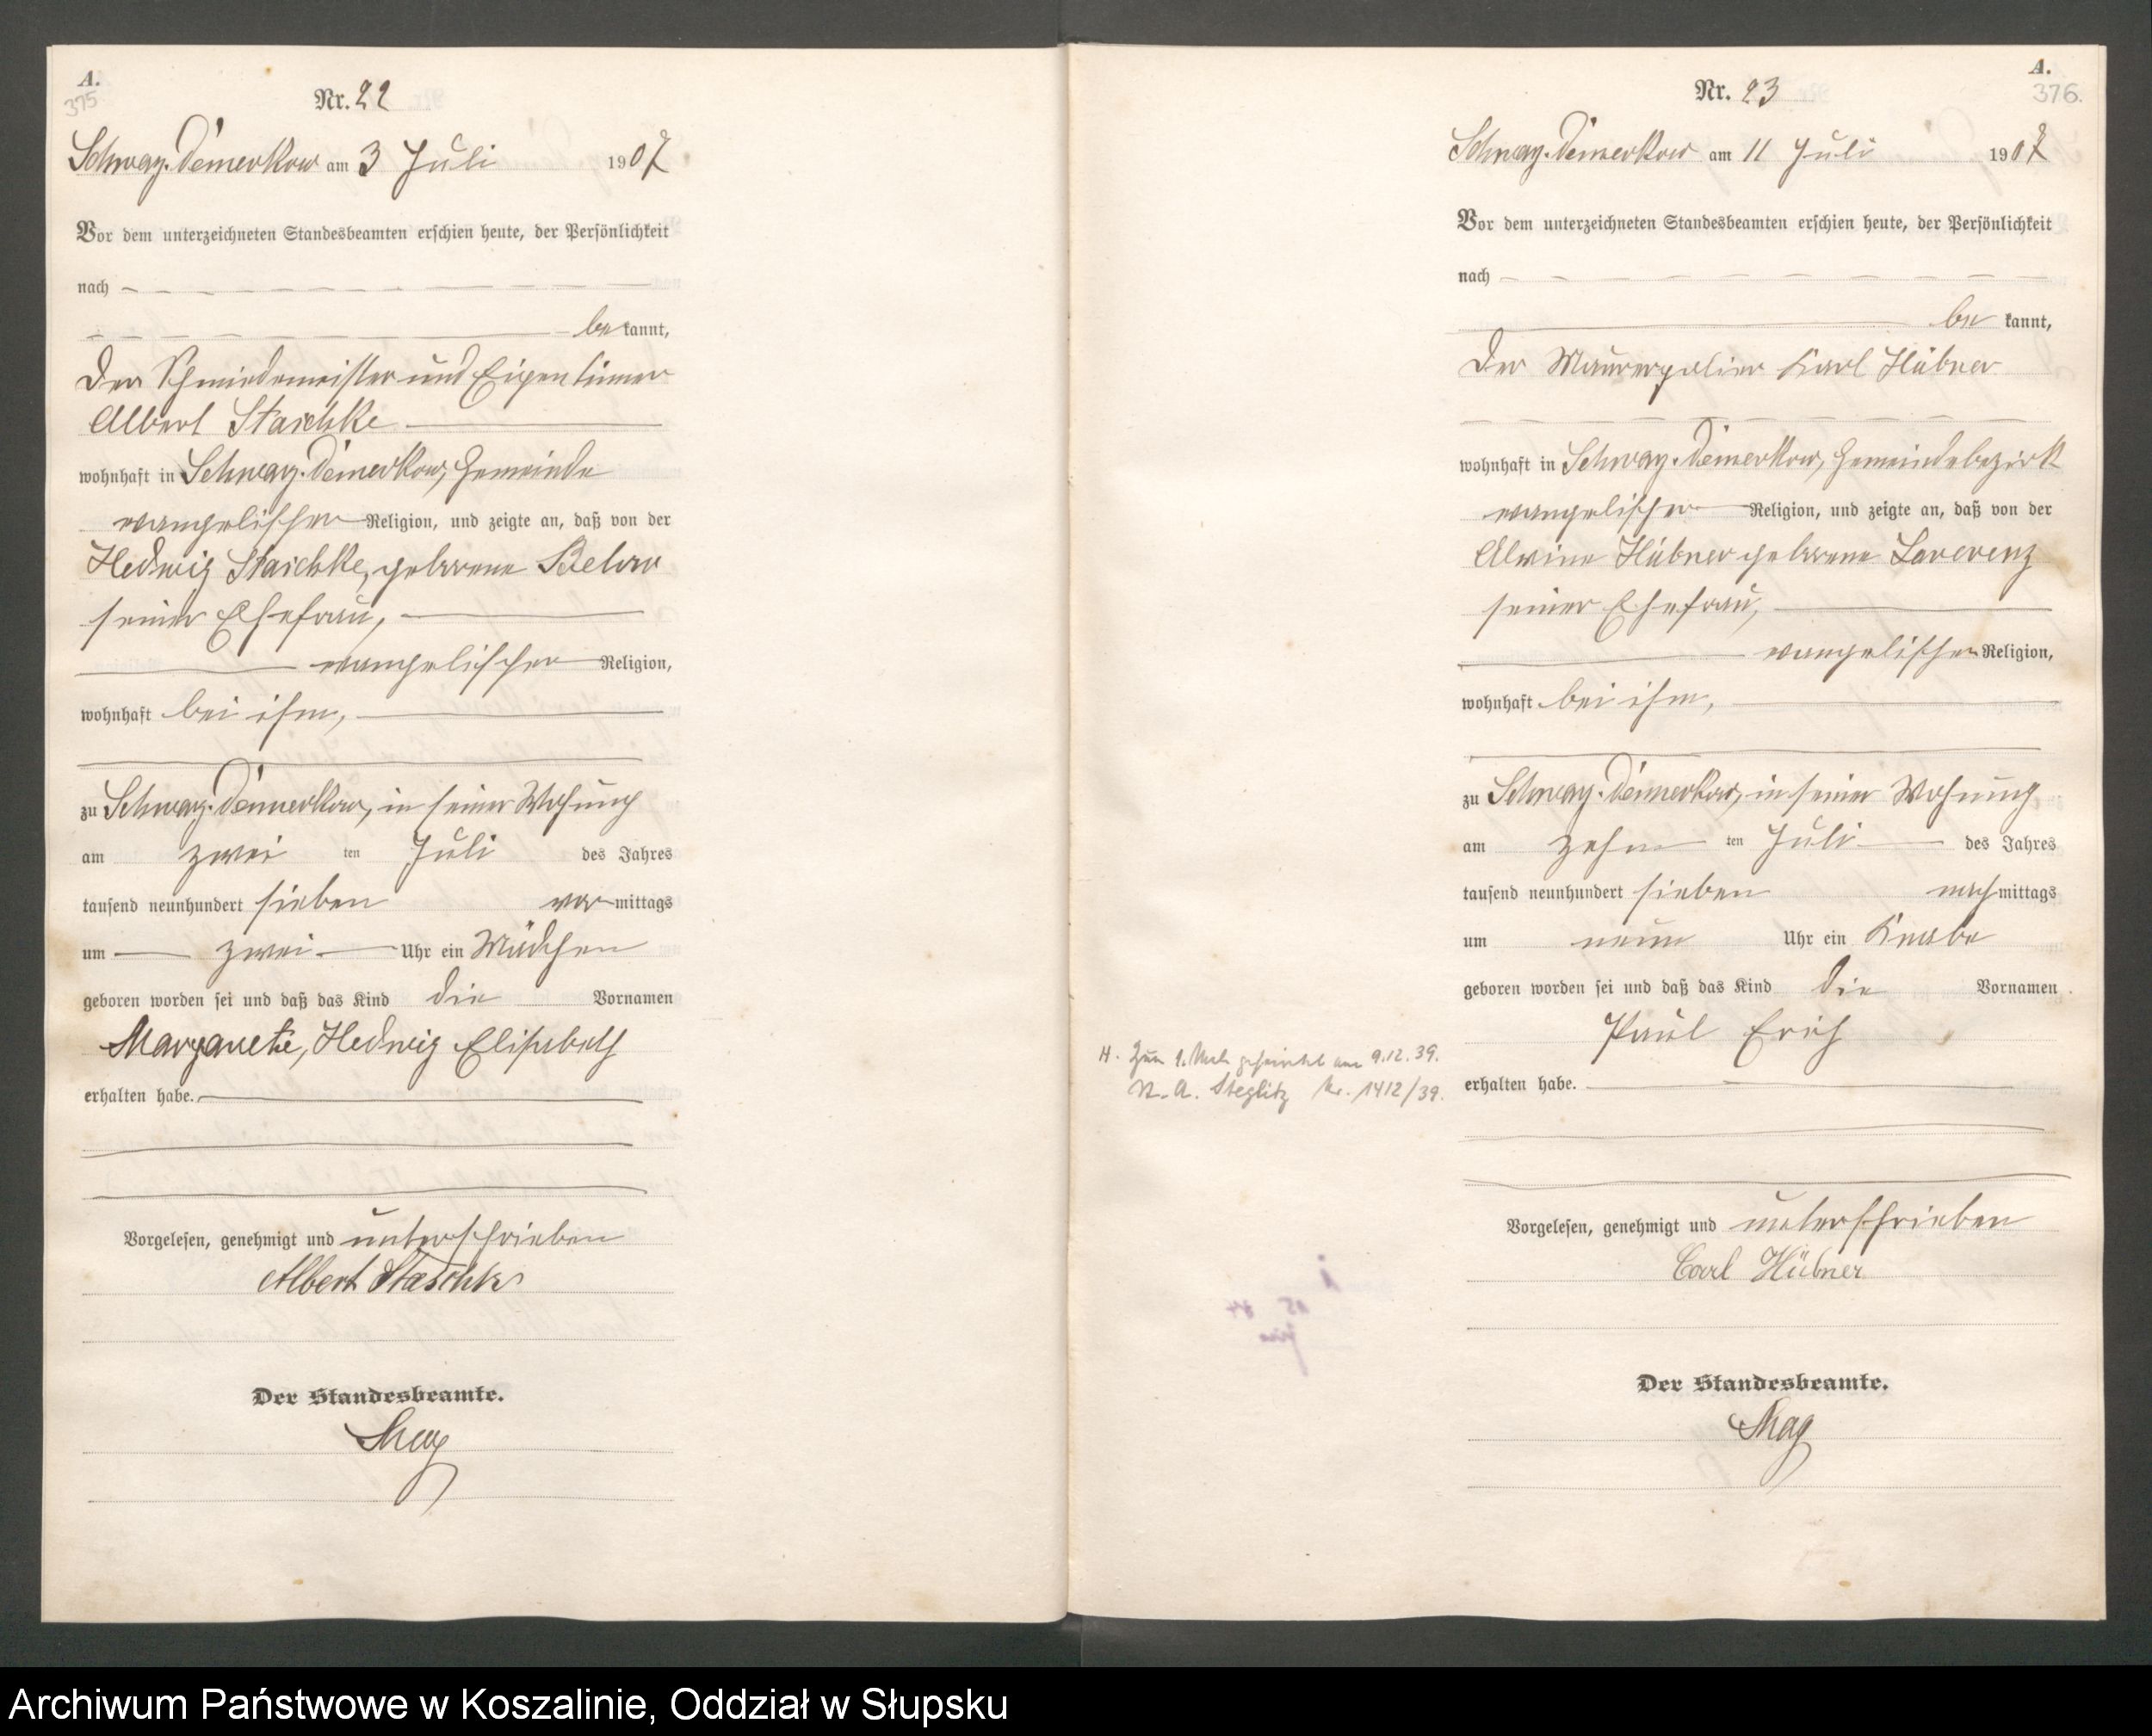 A.
375
Nr. 22
Schwarz. Damerkow am 3 Juli 1907
Vor dem unterzeichneten Standesbeamten erschien heute, der Persönlichkeit
nach
be kannt,
der Schmiedemeister und Eigentümer
Albert Staschke
wohnhaft in Schwarz. Damerkow, Gemeinde
evangelischer Religion, und zeigte an, daß von der
Hedwig Staschke, geborene Below
seiner Ehefrau,
evangelischer Religion,
wohnhaft bei ihm,
zu Schwarz. Damerkow, in seiner Wohung
am zwei ten Juli des Jahres
tausend neunhundert sieben vor mittags
um zwei Uhr ein Mädchen
geboren worden sei und daß das Kind die Vornamen
Margarete, Hedwig Elisabeth
erhalten habe.
Vorgelesen, genehmigt und unterschrieben
Albert Staschke
Der Standesbeamte.
A.
376.
Nr. 23
Schwarz. Damerkow am 11 Juli 1907
Vor dem unterzeichneten Standesbeamten erschien heute, der Persönlichkeit
nach
be kannt,
der Maurerpolier Karl Hübner
wohnhaft in Schwarz. Damerkow, Gemeindebezirk
evangelischer Religion, und zeigte an, daß von der
Alwine Hübner geborene Laverenz
seiner Ehefrau,
evangelischer Religion,
wohnhaft bei ihm,
zu Schwarz. Damerkow, in seiner Wohung
am zehn ten Juli des Jahres
tausend neunhundert sieben nach mittags
um neun Uhr ein Knabe
geboren worden sei und daß das Kind die Vornamen
Paul Erich
erhalten habe.
H. Zum 1. Male geheiratet am 9.12.39.
St. A. Steglitz Nr. 1412/39.
Vorgelesen, genehmigt und unterschrieben
Carl Hübner
Der Standesbeamte.
Archiwum Państwowe w Koszalinie, Oddział w Słupsku